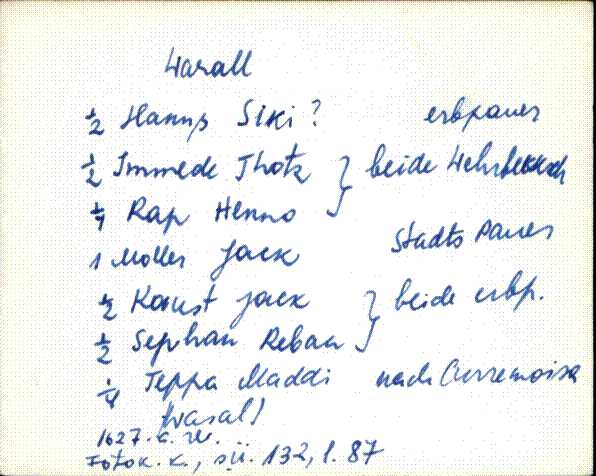 Warall
½ Hanns Siki? erbpauer
½ Immede Thotz } beide
¼ Rap Henno
1 Moller Jack Stadts Pauer
½ Kaust Jack } beide erbp.
½ Sephan Reban
¼ Teppa Maddi nach Curremoisa
(vasal)
1627. a. rv.
Fotok. k., sü. 132, l. 87